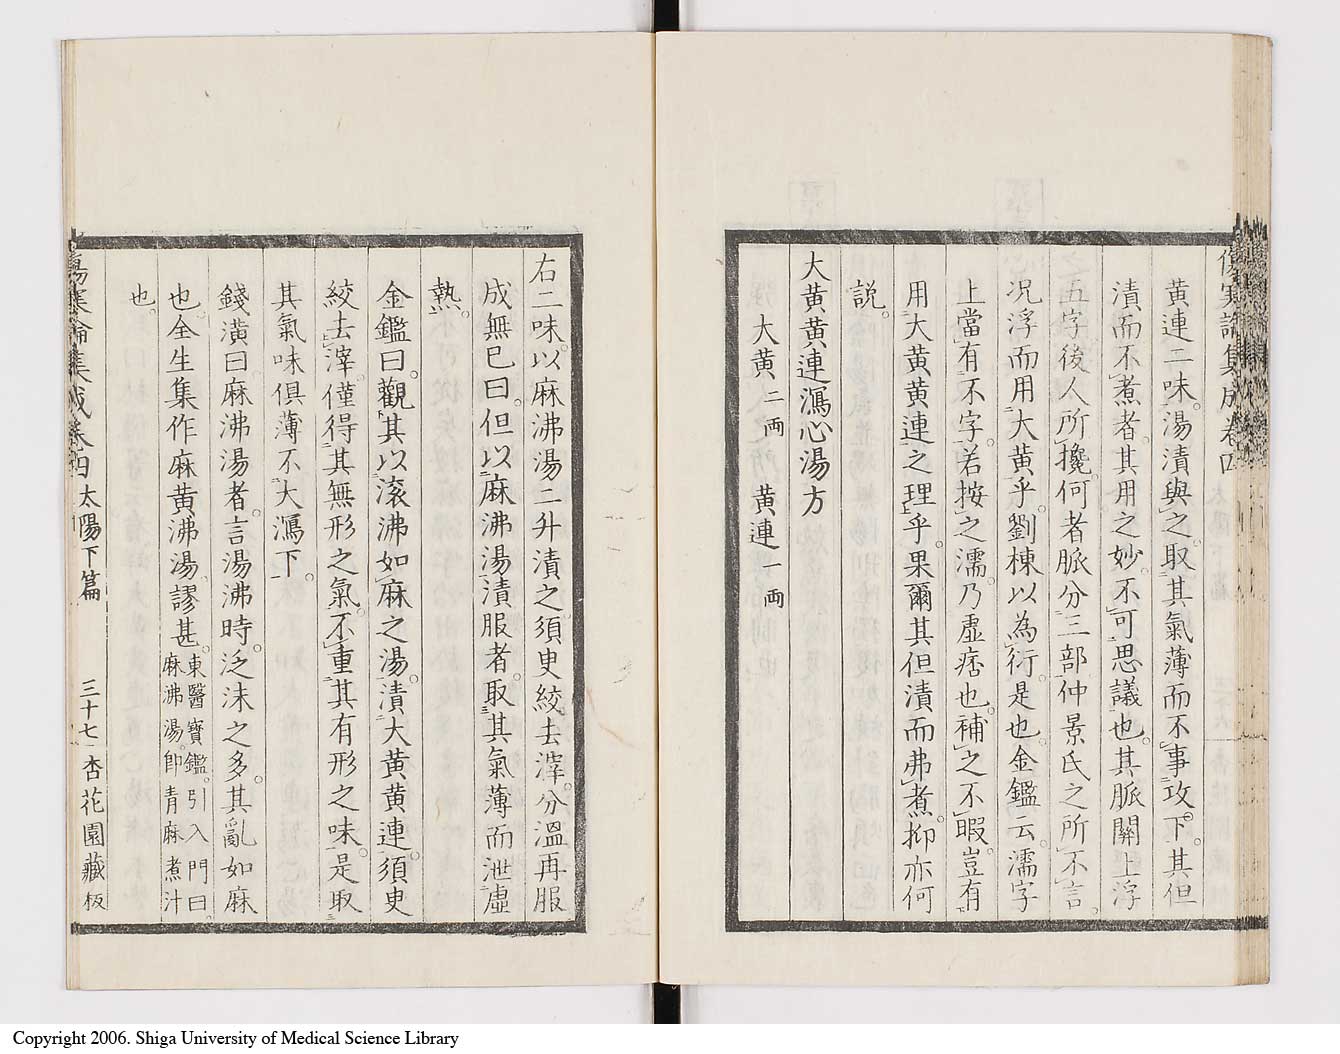 黄連二味。湯漬與之。取其氣薄而不事攻下。其但
漬而不煮者。其用之妙。不可思議也。其脈關上浮
五字。後人所攙。何者脈分三部。仲景氏之所不言。
况浮而用大黄乎。劉棟以為衍。是也。金鑑云。濡字
上當有不字。若按之濡。乃虚痞也。補之不暇。豈有
用大黄黄連之理乎。果爾其但漬而弗煮。抑亦何
説。
大黄黄連瀉心湯方
大黄二両 黄連一両
右二味。以麻沸湯二升漬之。須臾絞去滓。分溫再服
成無已曰。但以麻沸湯漬服者。取其氣薄而泄虚
熱。
金鑑曰。觀其以滚沸如麻之湯。漬大黄黄連。須臾
絞去滓。僅得其無形之氣。不重其有形之味。是取
其氣味俱薄不大瀉下。
錢潢曰。麻沸湯者。言湯沸時。泛沫之多。其亂如麻
也。全生集作麻黄沸湯。謬甚。東醫寳鑑。引入門曰。
麻沸湯。即青麻煮汁
也。
傷寒論集成卷四 太陽下篇 三十七 杏花園藏板
傷寒論集成卷四
Copyright 2006. Shiga University of Medical Science Library